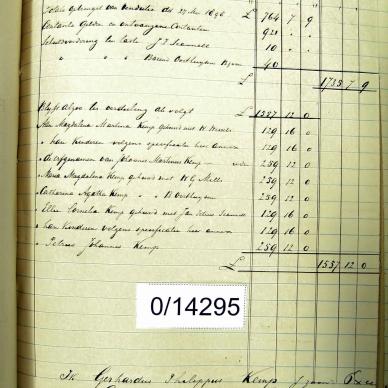 Totale van vendutie dd 27 Mei 1896 £ 764 7 9
Contante Gelden en ontvangene Contanten 921
Schuldvordering ten laste J J Scannell 10
" " Barend Oosthuysen Bzoon 40
£ 1735 7 9
Blyft alzoo ter verdeeling als volgt £ 1557 12 0
Aan Magdalena Martina Kemp gehuwd met H 129 16 0
" haar kinderen volgens specificatie hier annexe 129 16 0
" Erfgenamen van Johannes Marthinus Kemp 259 12 0
" Maria Magdalena Kemp gehuwd met H G Mills 259 12 0
" Catharina Agatha Kemp " " B Oosthuysen 259 12 0
" Ellen Cornelia Kemp gehuwd met Jan 129 16 0
" haar kinderen volgens specificatie hier annexe 129 16 0
" Petrus Johannes Kemp 259 12 0
£ 1557 12 0
0/14295
Ik Gerhardus Philippus Kemp